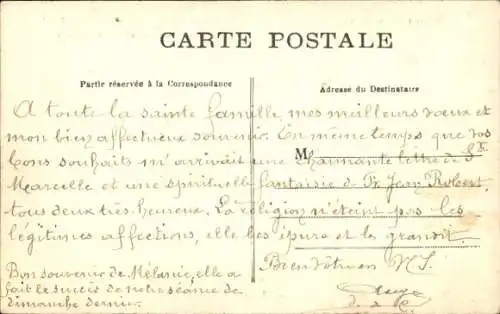 CARTE POSTALE
Partie réservée à la Correspondance
Adresse du Destinataire
A toute la sainte famille, mes meilleurs vœux et
mon bien affectueux souvenir. En même temps que vos
bons souhaits m'arrivait une charmante lettre de Sr
M
Marcelle et une spirituelle fantaisie de Fr. Jean Robert,
tous deux très heureux. La religion n'éteint pas les
légitimes affections, elle les épure et les grandit.
Bien vôtre en N.S.
Bon souvenir de Mélanie, elle a
fait le succès de notre séance de
dimanche dernier.